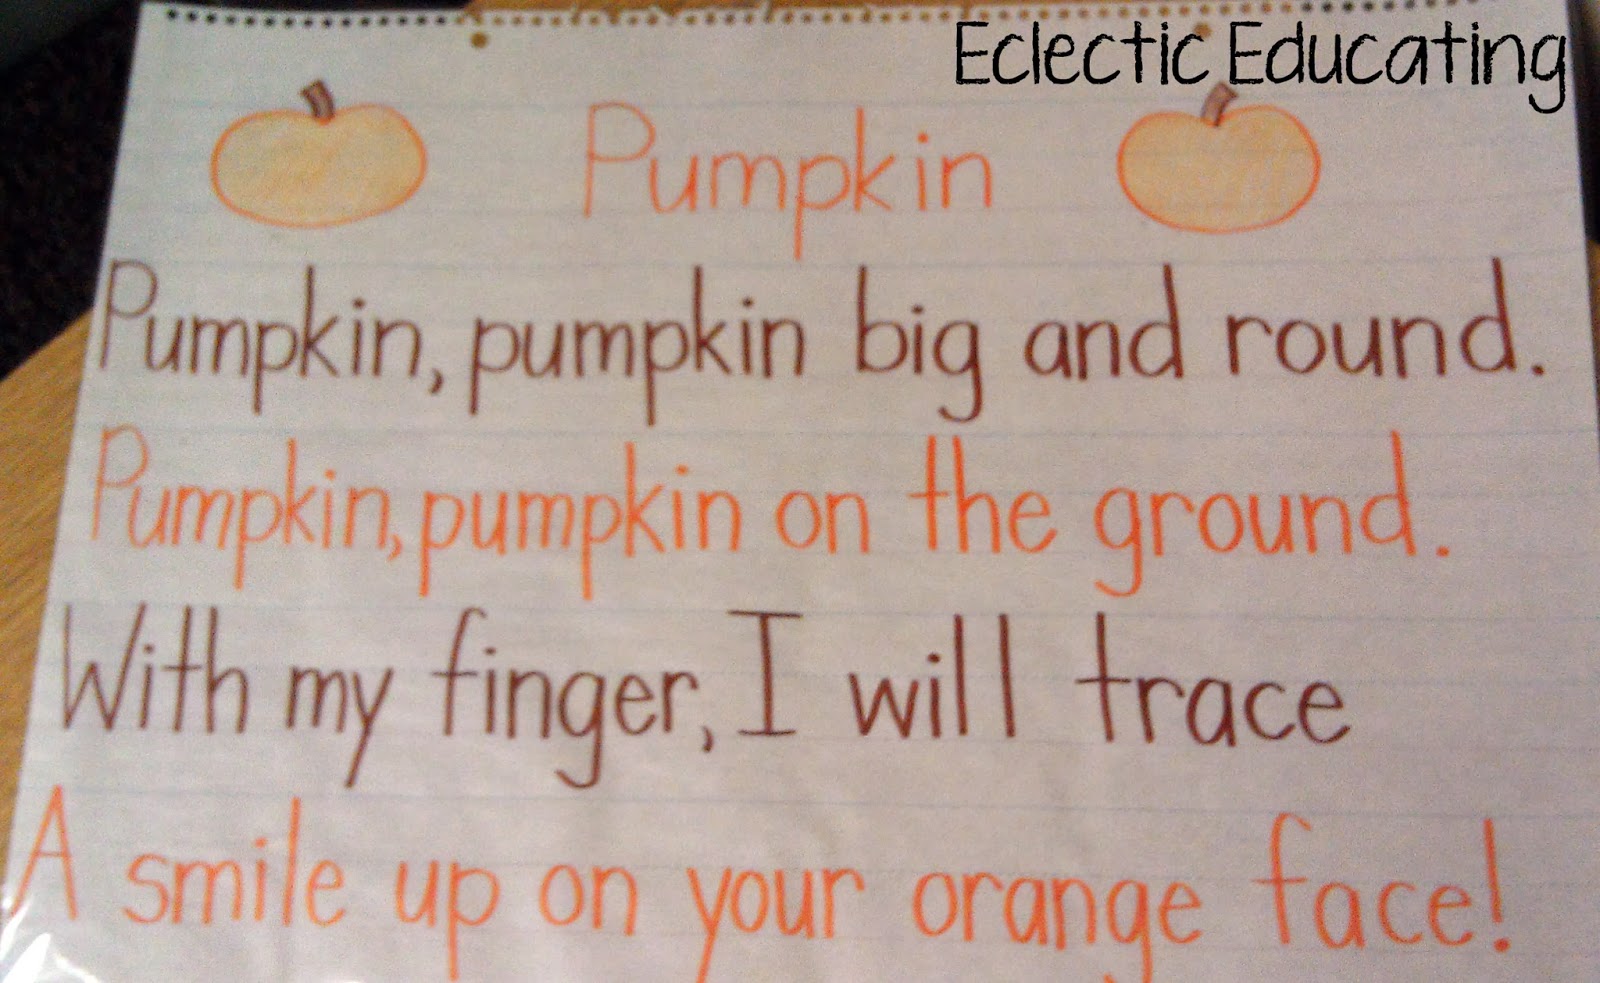 Eclectic Educating
Pumpkin
Pumpkin, pumpkin big and round.
Pumpkin, pumpkin on the ground.
With my finger, I will trace
A smile up on your orange face!